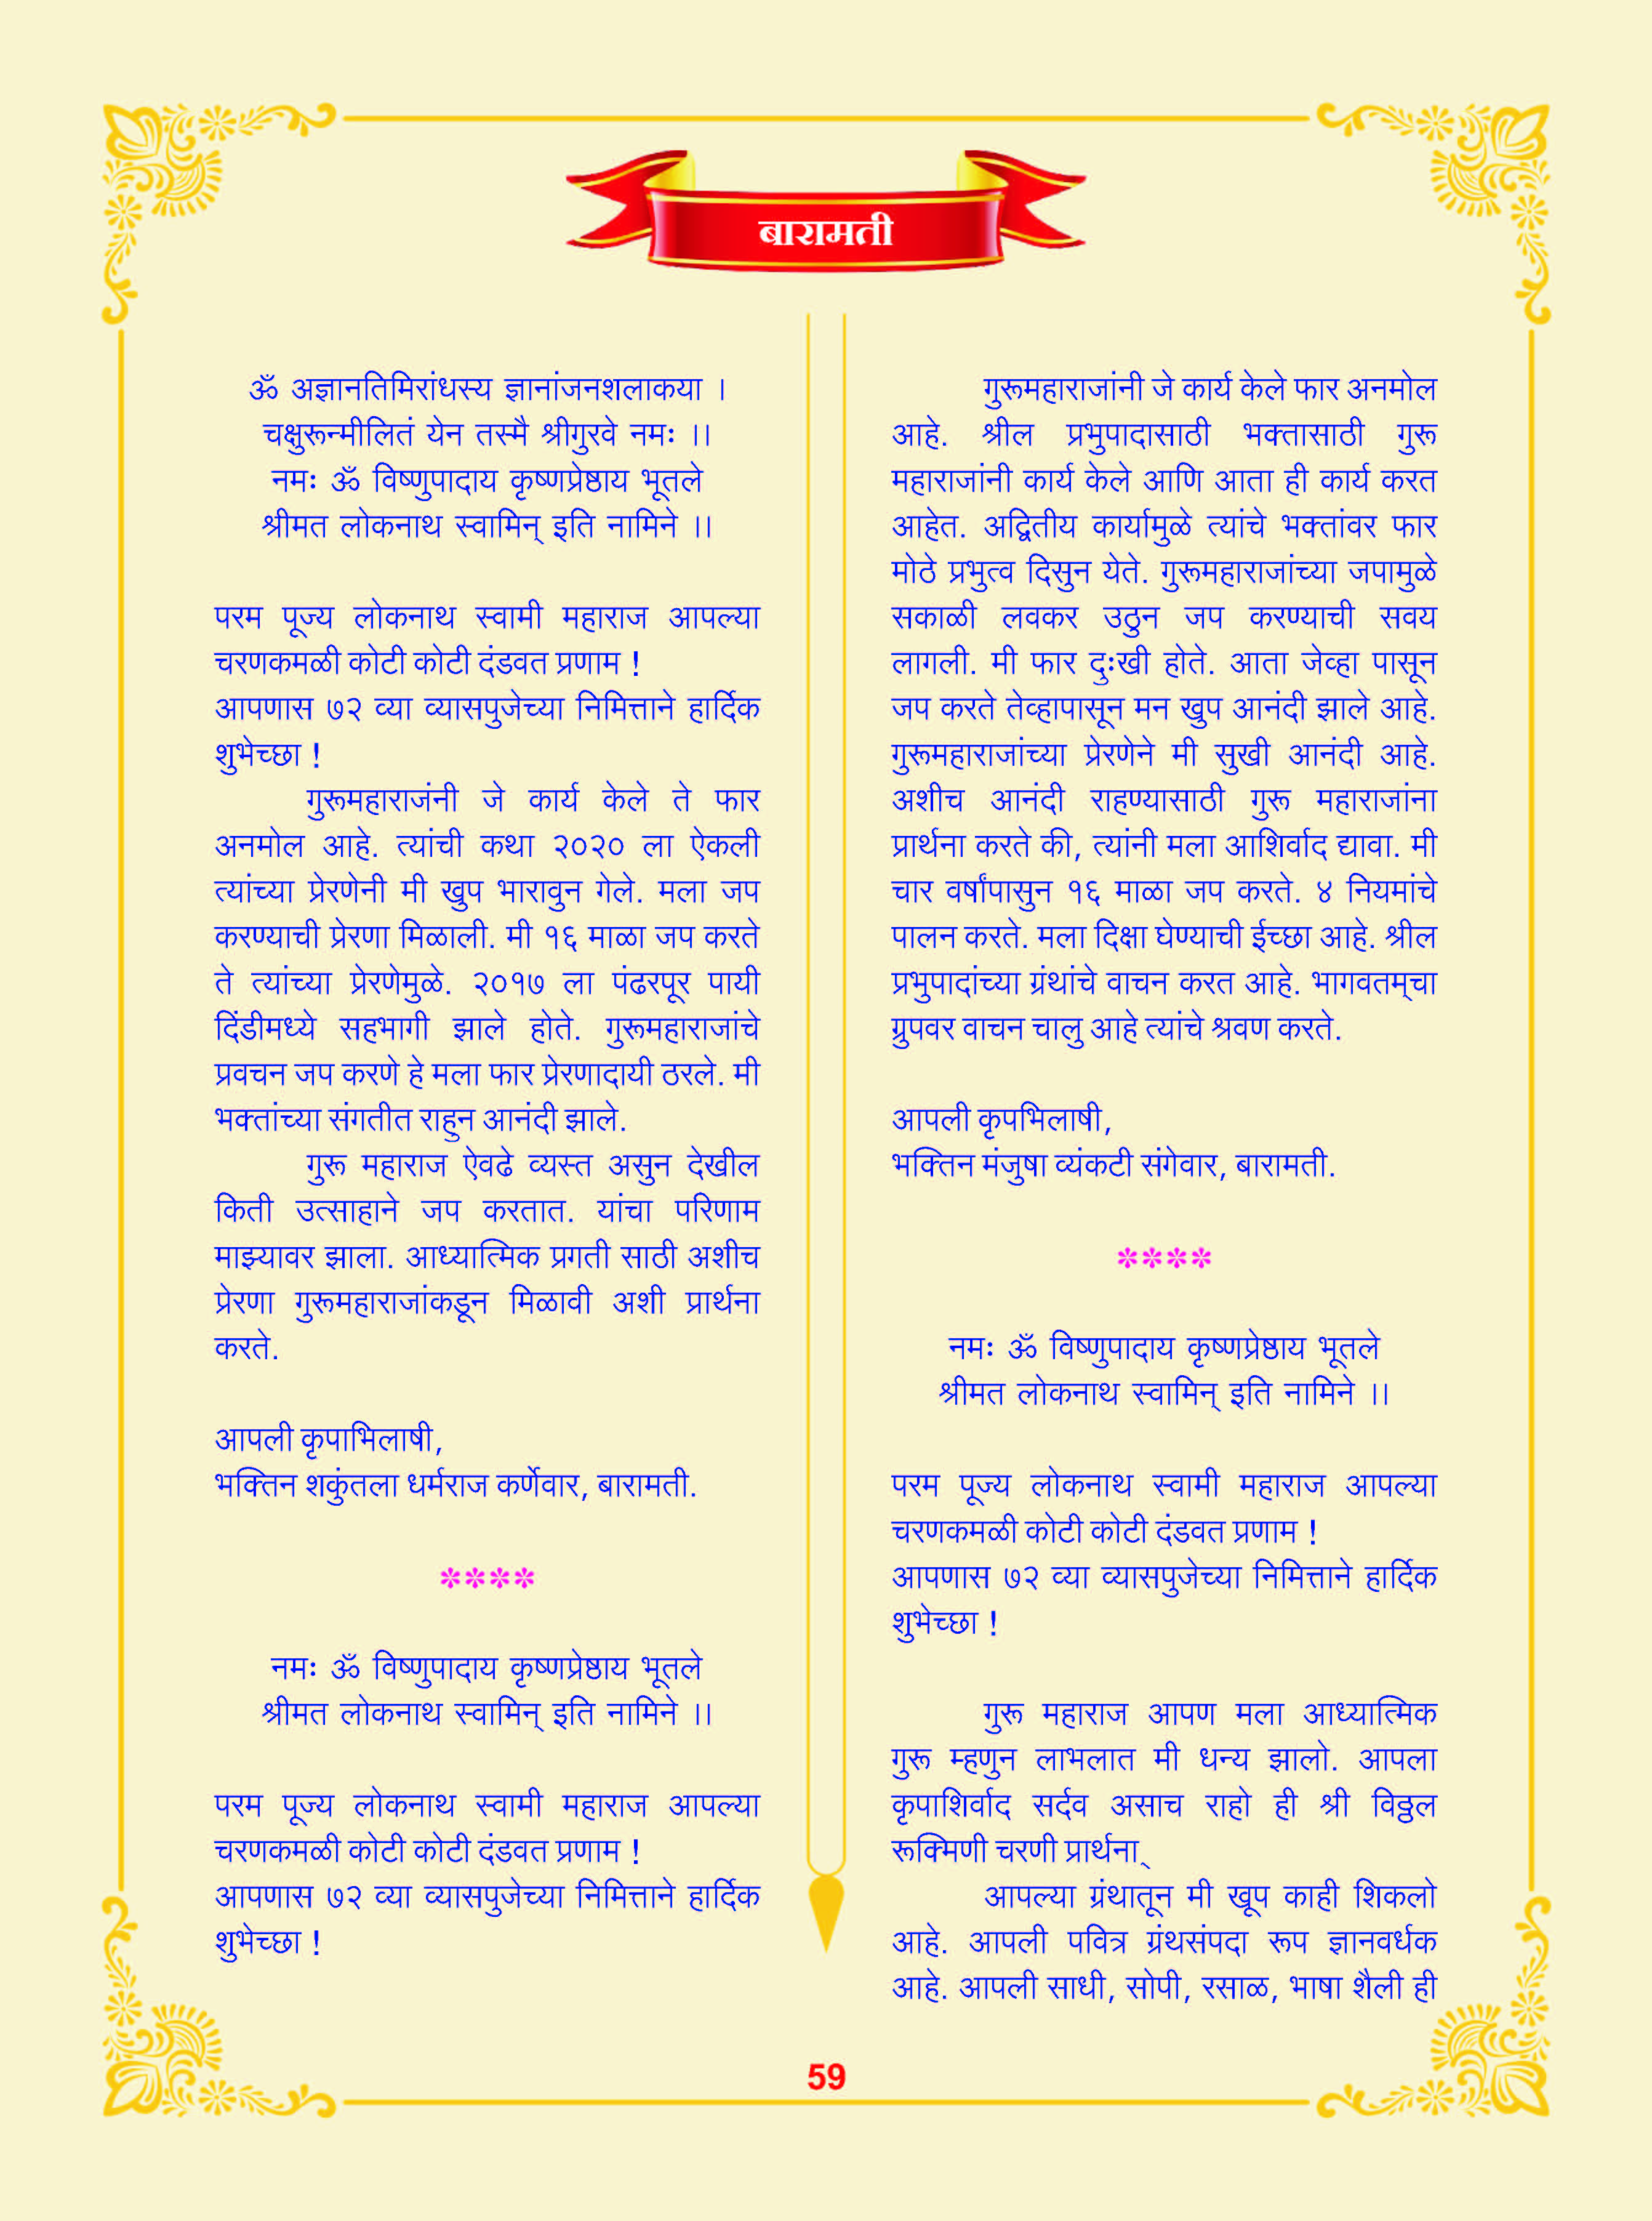 बारामती
ॐ अज्ञानतिमिरांधस्य ज्ञानांजनशलाकया ।
चक्षुरून्मीलितं येन तस्मै श्रीगुरवे नमः ।।
नमः ॐ विष्णुपादाय कृष्णप्रेष्ठाय भूतले
श्रीमत लोकनाथ स्वामिन् इति नामिने ।।
परम पूज्य लोकनाथ स्वामी महाराज आपल्या
चरणकमळी कोटी कोटी दंडवत प्रणाम !
आपणास ७२ व्या व्यासपुजेच्या निमित्ताने हार्दिक
शुभेच्छा !
गुरूमहाराजंनी जे कार्य केले ते फार
अनमोल आहे. त्यांची कथा २०२० ला ऐकली
त्यांच्या प्रेरणेनी मी खुप भारावुन गेले. मला जप
करण्याची प्रेरणा मिळाली. मी १६ माळा जप करते
ते त्यांच्या प्रेरणेमुळे. २०१७ ला पंढरपूर पायी
दिंडीमध्ये सहभागी झाले होते. गुरूमहाराजांचे
प्रवचन जप करणे हे मला फार प्रेरणादायी ठरले. मी
भक्तांच्या संगतीत राहुन आनंदी झाले.
गुरू महाराज ऐवढे व्यस्त असुन देखील
किती उत्साहाने जप करतात. यांचा परिणाम
माझ्यावर झाला. आध्यात्मिक प्रगती साठी अशीच
प्रेरणा गुरूमहाराजांकडून मिळावी अशी प्रार्थना
करते.
आपली कृपाभिलाषी,
भक्तिन शकुंतला धर्मराज कर्णेवार, बारामती.
****
नमः ॐ विष्णुपादाय कृष्णप्रेष्ठाय भूतले
श्रीमत लोकनाथ स्वामिन् इति नामिने ।।
परम पूज्य लोकनाथ स्वामी महाराज आपल्या
चरणकमळी कोटी कोटी दंडवत प्रणाम !
आपणास ७२ व्या व्यासपुजेच्या निमित्ताने हार्दिक
शुभेच्छा !
गुरूमहाराजांनी जे कार्य केले फार अनमोल
आहे. श्रील प्रभुपादासाठी भक्तासाठी गुरू
महाराजांनी कार्य केले आणि आता ही कार्य करत
आहेत. अद्वितीय कार्यामुळे त्यांचे भक्तांवर फार
मोठे प्रभुत्व दिसुन येते. गुरूमहाराजांच्या जपामुळे
सकाळी लवकर उठुन जप करण्याची सवय
लागली. मी फार दुःखी होते. आता जेव्हा पासून
जप करते तेव्हापासून मन खुप आनंदी झाले आहे.
गुरूमहाराजांच्या प्रेरणेने मी सुखी आनंदी आहे.
अशीच आनंदी राहण्यासाठी गुरू महाराजांना
प्रार्थना करते की, त्यांनी मला आशिर्वाद द्यावा. मी
चार वर्षांपासुन १६ माळा जप करते. ४ नियमांचे
पालन करते. मला दिक्षा घेण्याची ईच्छा आहे. श्रील
प्रभुपादांच्या ग्रंथांचे वाचन करत आहे. भागवतम्‌चा
ग्रुपवर वाचन चालु आहे त्यांचे श्रवण करते.
आपली कृपभिलाषी,
भक्तिन मंजुषा व्यंकटी संगेवार, बारामती.
****
नमः ॐ विष्णुपादाय कृष्णप्रेष्ठाय भूतले
श्रीमत लोकनाथ स्वामिन् इति नामिने ।।
परम पूज्य लोकनाथ स्वामी महाराज आपल्या
चरणकमळी कोटी कोटी दंडवत प्रणाम !
आपणास ७२ व्या व्यासपुजेच्या निमित्ताने हार्दिक
शुभेच्छा !
गुरू महाराज आपण मला आध्यात्मिक
गुरू म्हणुन लाभलात मी धन्य झालो. आपला
कृपाशिर्वाद सर्दव असाच राहो ही श्री विठ्ठल
रूक्मिणी चरणी प्रार्थना्
आपल्या ग्रंथातून मी खूप काही शिकलो
आहे. आपली पवित्र ग्रंथसंपदा रूप ज्ञानवर्धक
आहे. आपली साधी, सोपी, रसाळ, भाषा शैली ही
59